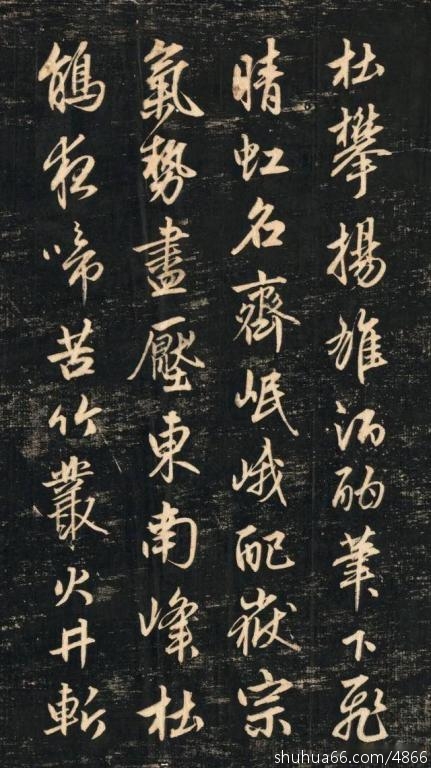 杜攀揚雄酒酣筆下飛
晴虹名齊岷峨配嶽宗
氣勢盡壓東南峰杜
鵑夜啼苦竹叢火井斬
shuhua66.com/4866